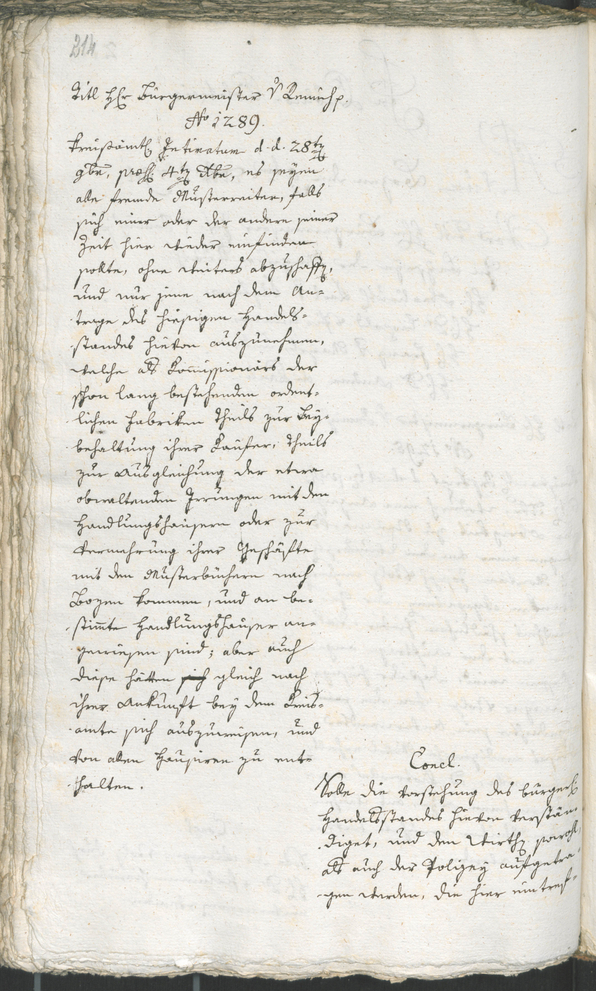 214
Titl Hr Bürgermeister v Remich p.
No 1289.
Kreisämtl Intimatum d. d. 28ten
9br, praes. 4ten Xbr, es seyen
alle fremde Musterreiter, falls
sich einer oder der andere seiner
Zeit hier wieder einfinden
sollte, ohne weiters abzuschaffen,
und nur jene nach dem An-
trage des hiesigen Handels-
standes hievon auszunehmen,
welche als Kommissionärs der
schon lang bestehenden ordent-
lichen Fabriken theils zur Bey-
behaltung ihrer Käufer, theils
zur Ausgleichung der etwa
obwaltenden Irrungen mit den
Handlungshäusern oder zur
Vermehrung ihrer Geschäfte
mit den Musterbüchern nach
Bozen kommen, und an be-
stimmte Handlungshäuser an-
gewiesen sind; aber auch
diese hätten sich gleich nach
ihrer Ankunft bey dem Kreis-
amte sich auszuweisen, und
von allen Hausiren zu ent-
halten.
Concl.
Solle die Vorstehung des bürgerl
Handelsstandes hievon verstän-
diget, und den Wirthen sowohl
als auch der Polizey aufgetra-
gen werden, die hier eintref-